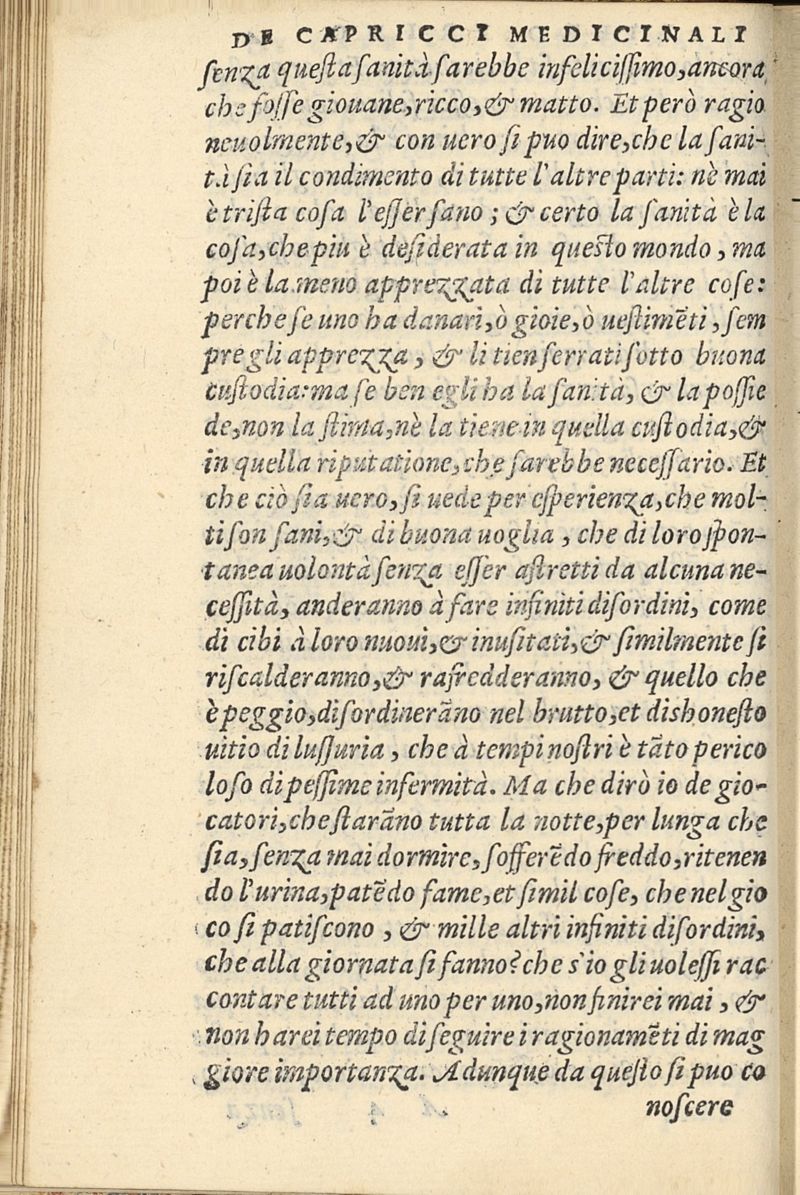 DE CAPRICCI MEDICINALI
ſenza queſta ſanità ſarebbe infeliciſſimo, ancora
che foſſe giouane, ricco, & matto. Et però ragio
neuolmente, & con uero ſi puo dire, che la ſani-
tà ſia il condimento di tutte l'altre parti: nè mai
è triſta coſa l'eſſer ſano; & certo la ſanità è la
coſa, che piu è deſiderata in queſto mondo, ma
poi è la meno apprezzata di tutte l'altre coſe:
perche ſe uno ha danari, ò gioie, ò ueſtimẽti, ſem
pre gli apprezza, & li tien ſerrati ſotto buona
cuſtodia: ma ſe ben egli ha la ſanità, & la poſſie
de, non la ſtima, nè la tiene in quella cuſtodia, &
in quella riputatione, che ſarebbe neceſſario. Et
che ciò ſia uero, ſi uede per eſperienza, che mol-
ti ſon ſani, & di buona uoglia, che di loro ſpon-
tanea uolontà ſenza eſſer aſtretti da alcuna ne-
ceſſità, anderanno à fare infiniti diſordini, come
di cibi à loro nuoui, & inuſitati, & ſimilmente ſi
riſcalderanno, & rafredderanno, & quello che
è peggio, diſordinerãno nel brutto, et dishoneſto
uitio di luſſuria, che à tempi noſtri è tãto perico
loſo di peſſime infermità. Ma che dirò io de gio-
catori, che ſtarãno tutta la notte, per lunga che
ſia, ſenza mai dormire, ſofferẽdo freddo, ritenen
do l'urina, patẽdo fame, et ſimil coſe, che nel gio
co ſi patiſcono, & mille altri infiniti diſordini,
che alla giornata ſi fanno? che s'io gli uoleſſi rac
contare tutti ad uno per uno, non finirei mai, &
non harei tempo di ſeguire i ragionamẽti di mag
giore importanza. Adunque da queſto ſi puo co
noſcere